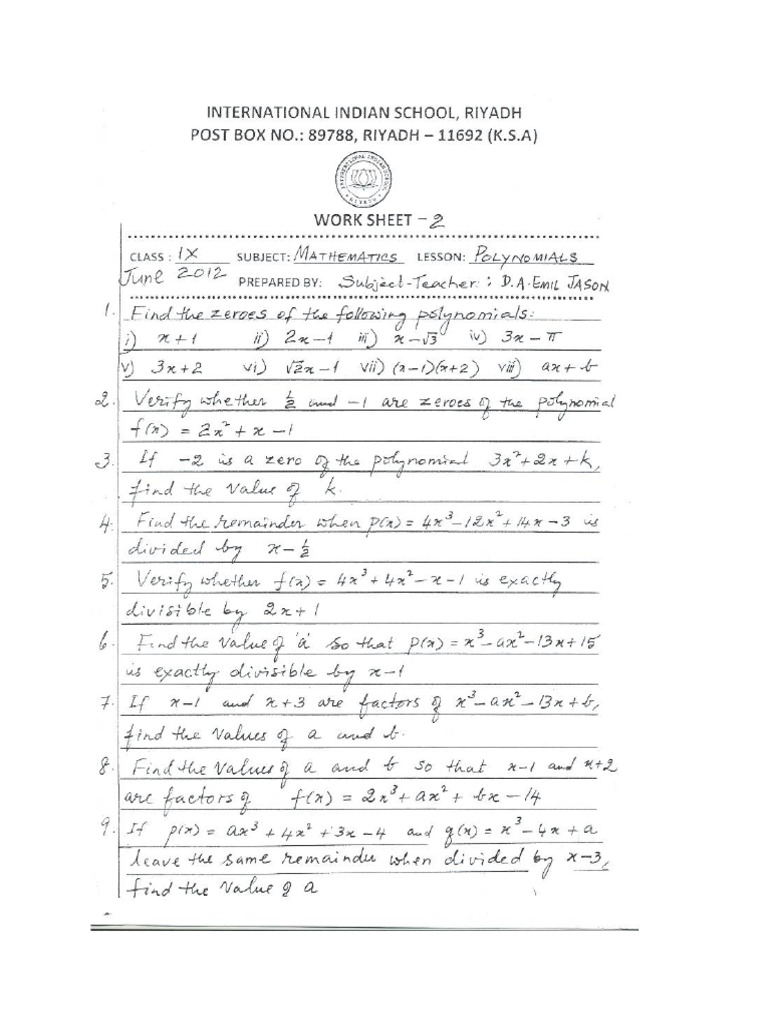 INTERNATIONAL INDIAN SCHOOL, RIYADH
POST BOX NO.: 89788, RIYADH – 11692 (K.S.A)
INTERNATIONAL INDIAN SCHOOL
RIYADH
WORK SHEET – 2
CLASS : IX SUBJECT: MATHEMATICS LESSON: POLYNOMIALS
June 2012 PREPARED BY: Subject-Teacher : D.A. EMIL JASON
1. Find the zeroes of the following polynomials:
i) x+1 ii) 2x-1 iii) x-√3 iv) 3x-π
v) 3x+2 vi) √2x-1 vii) (x-1)(x+2) viii) ax+b
2. Verify whether ½ and -1 are zeroes of the polynomial
f(x) = 2x² + x - 1
3. If -2 is a zero of the polynomial 3x²+2x+k,
find the value of k.
4. Find the remainder when p(x) = 4x³-12x²+14x-3 is
divided by x-½
5. Verify whether f(x) = 4x³+4x²-x-1 is exactly
divisible by 2x+1
6. Find the value of 'a' so that p(x) = x³-ax²-13x+15
is exactly divisible by x-1
7. If x-1 and x+3 are factors of x³-ax²-13x+b,
find the values of a and b.
8. Find the values of a and b so that x-1 and x+2
are factors of f(x) = 2x³+ax²+bx-14
9. If p(x) = ax³+4x²+3x-4 and q(x) = x³-4x+a
leave the same remainder when divided by x-3,
find the value of a